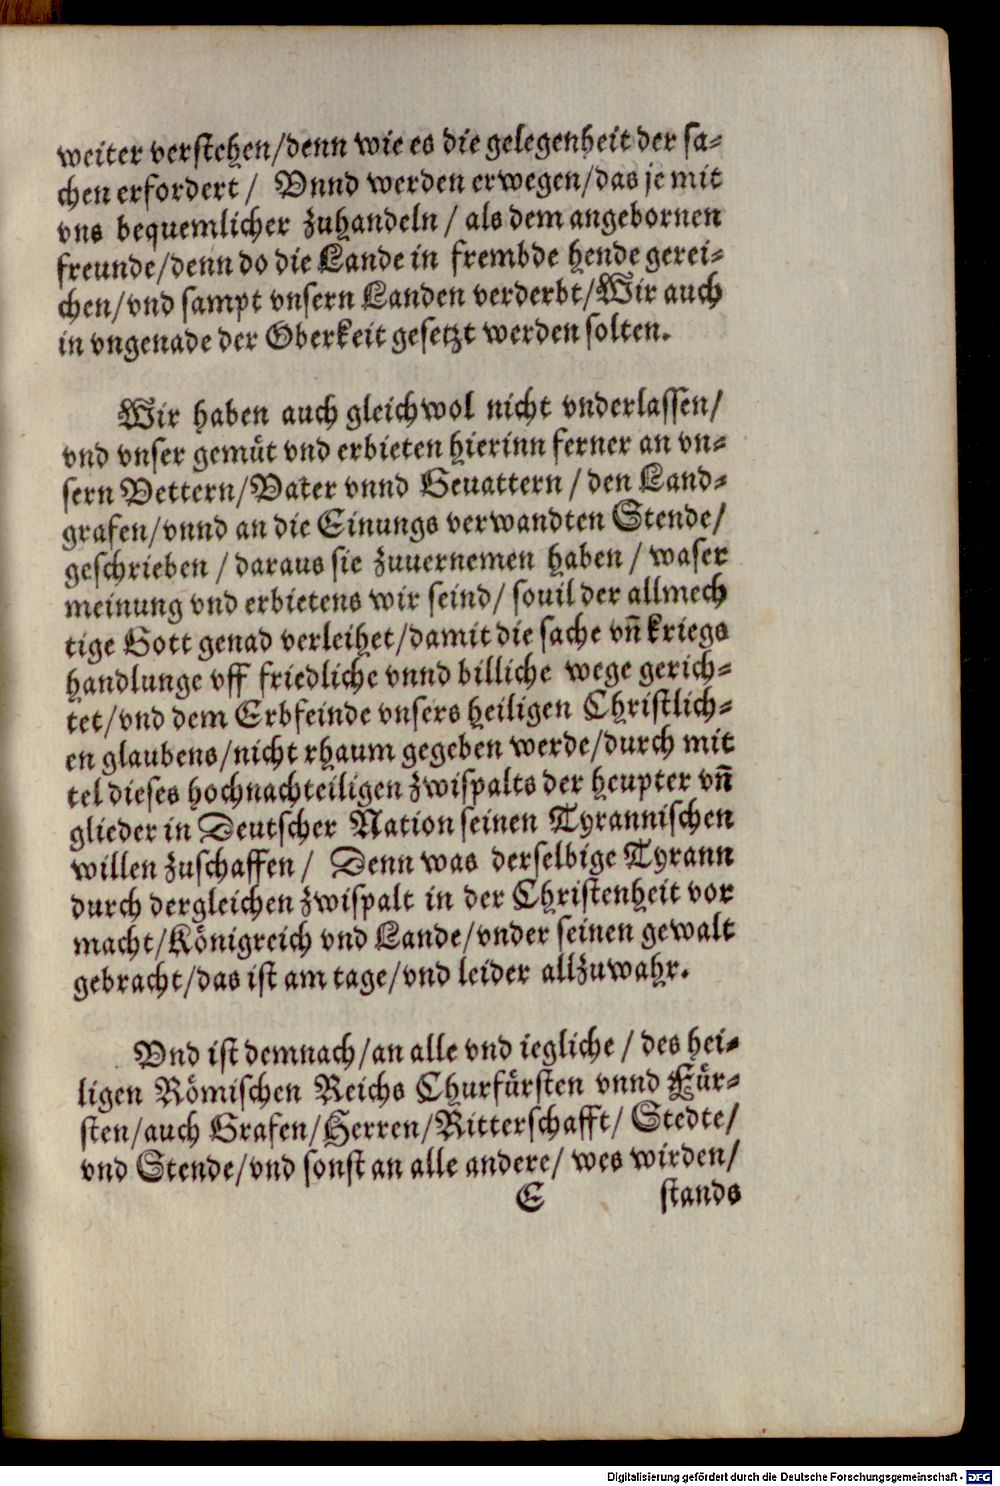 weiter verstehen/denn wie es die gelegenheit der sa-
chen erfordert/ Vnnd werden erwegen/das je mit
vns bequemlicher zuhandeln/ als dem angebornen
freunde/denn do die Lande in frembde hende gerei-
chen/vnd sampt vnsern Landen verderbt/Wir auch
in vngenade der Oberkeit gesetzt werden solten.
Wir haben auch gleichwol nicht vnderlassen/
vnd vnser gemüt vnd erbieten hierinn ferner an vn-
sern Vettern/Vater vnnd Geuattern/ den Land-
grafen/vnnd an die Einungs verwandten Stende/
geschrieben/ daraus sie zuuernemen haben/ waser
meinung vnd erbietens wir seind/ souil der allmech
tige Gott genad verleihet/damit die sache vn̄ kriegs
handlunge vff friedliche vnnd billiche wege gerich-
tet/vnd dem Erbfeinde vnsers heiligen Christlich-
en glaubens/nicht rhaum gegeben werde/durch mit
tel dieses hochnachteiligen zwispalts der heupter vn̄
glieder in Deutscher Nation seinen Tyrannischen
willen zuschaffen/ Denn was derselbige Tyrann
durch dergleichen zwispalt in der Christenheit vor
macht/Königreich vnd Lande/vnder seinen gewalt
gebracht/das ist am tage/vnd leider allzuwahr.
Vnd ist demnach/an alle vnd iegliche/ des hei-
ligen Römischen Reichs Churfürsten vnnd Für-
sten/auch Grafen/Herren/Ritterschafft/ Stedte/
vnd Stende/vnd sonst an alle andere/ wes wirden/
E stands
Digitalisierung gefördert durch die Deutsche Forschungsgemeinschaft - DFG